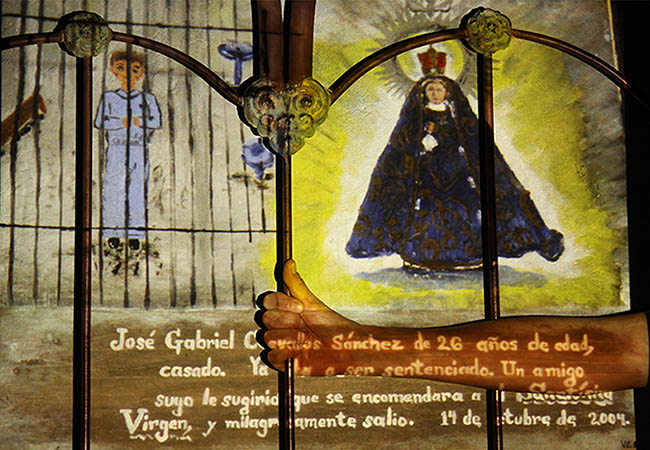 José Gabriel Sánchez de 26 años de edad,
casado. a ser sentenciado. Un amigo
suyo le sugirió que se encomendara a la Santísima
Virgen, y milagrosamente salio. 14 de octubre de 2004.